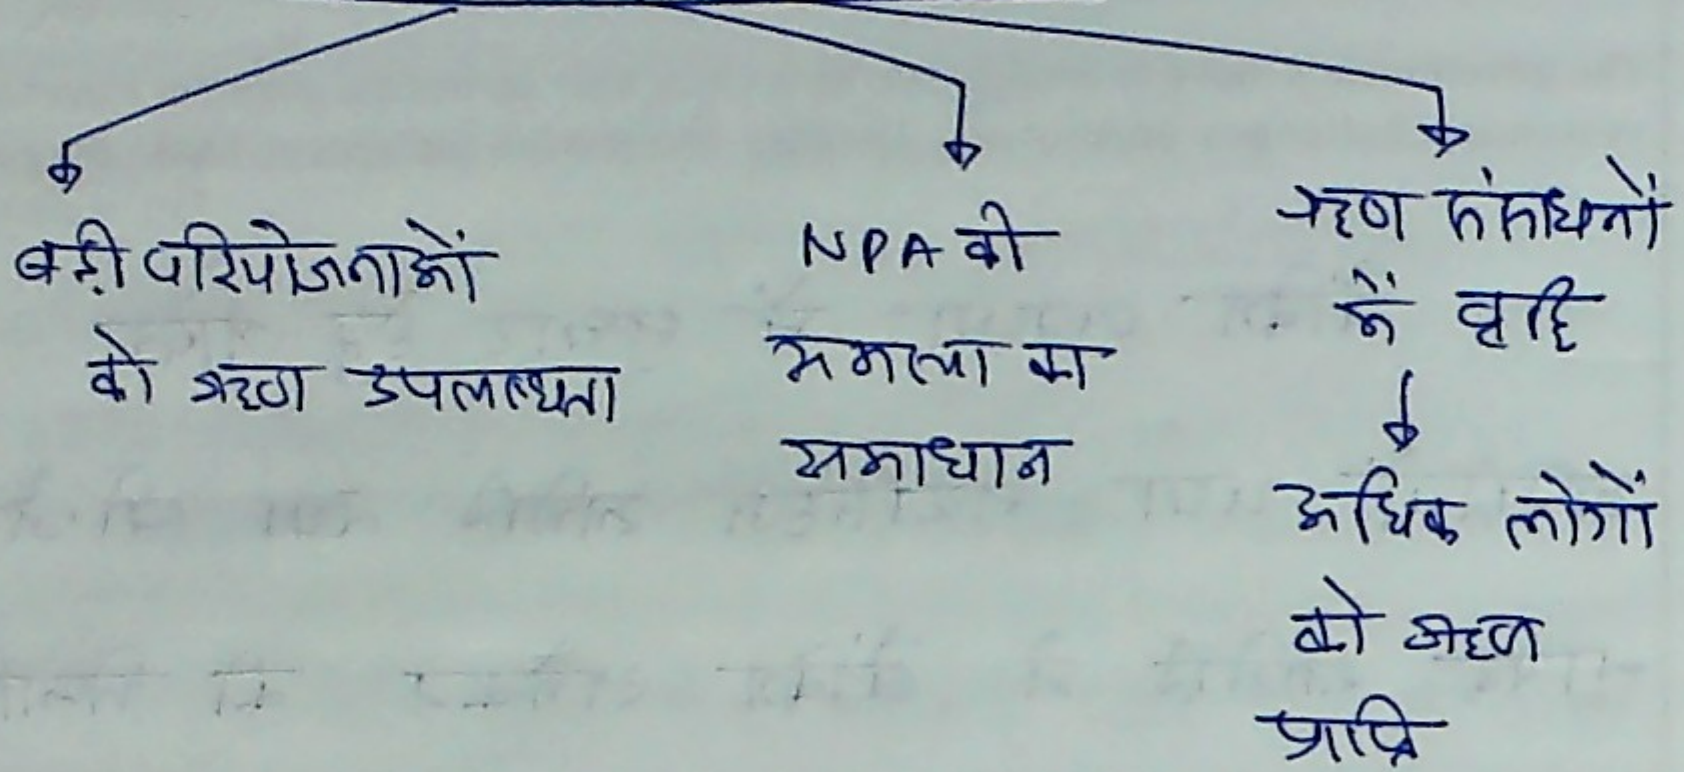 बड़ी परियोजनाओं
को ऋण उपलब्धता
NPA की
समस्या का
समाधान
ऋण संसाधनों
में वृद्धि
अधिक लोगों
को ऋण
प्राप्ति